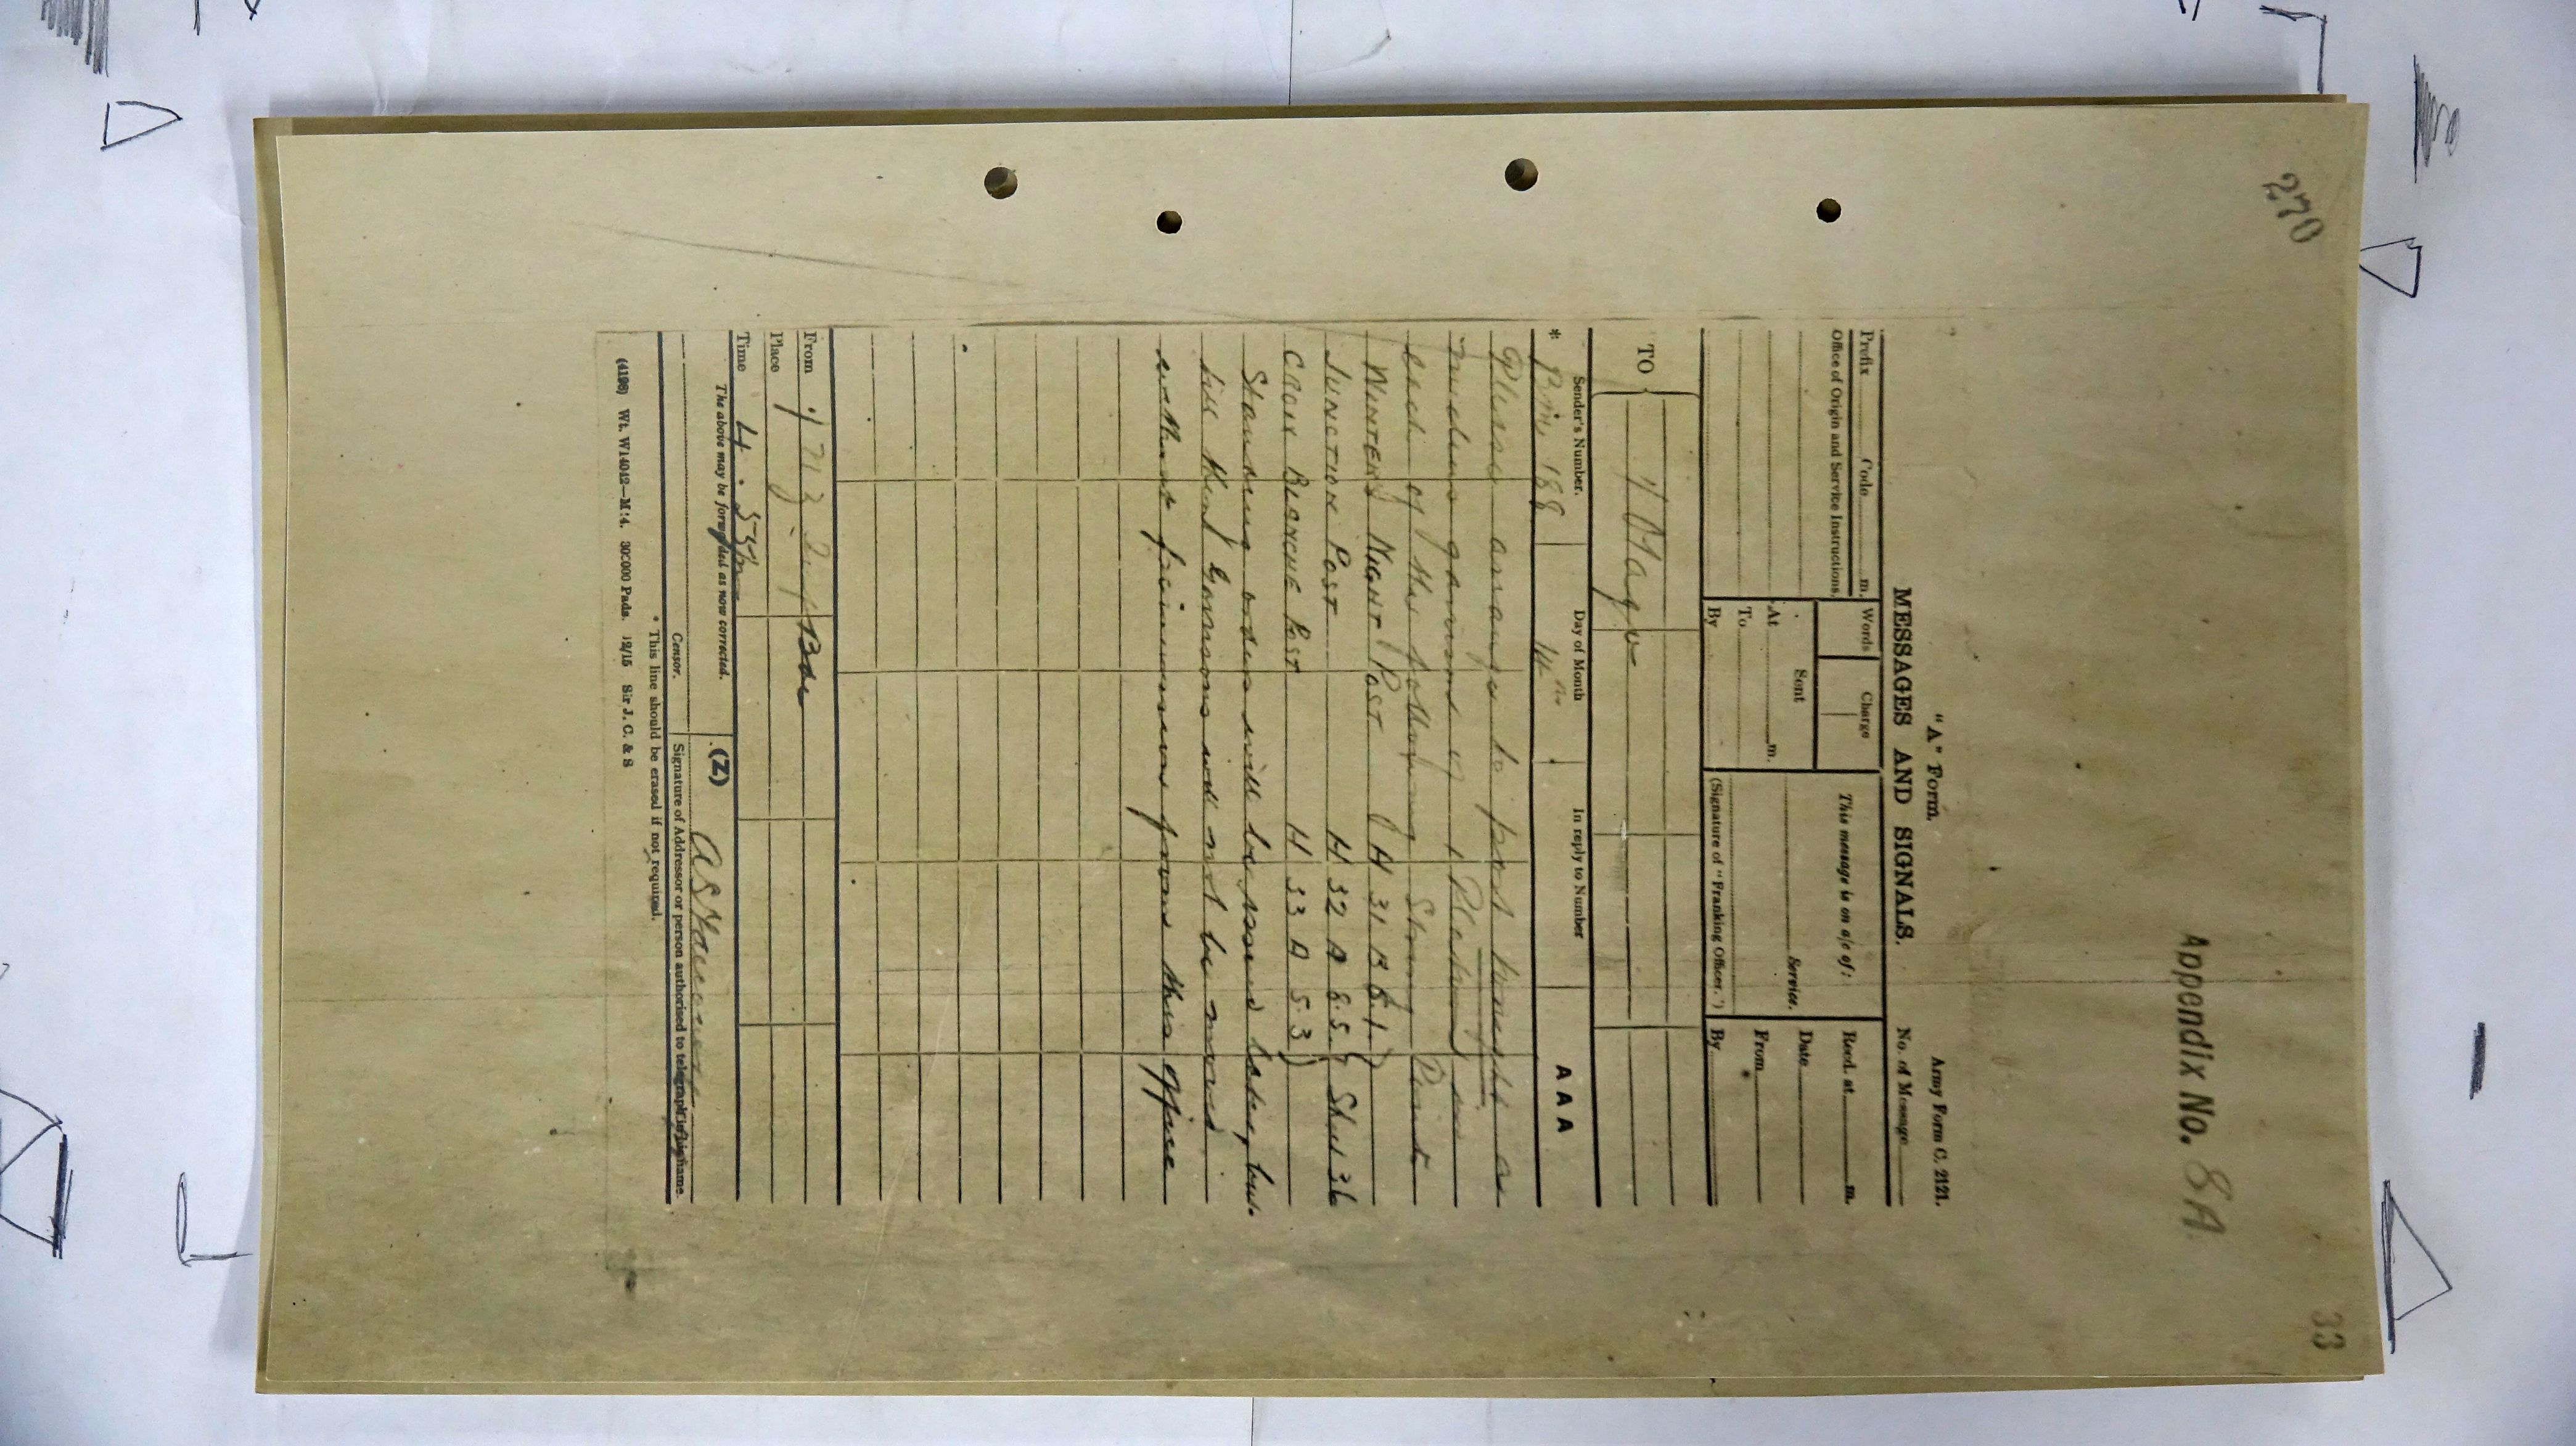 270
33
Appendix No. 8A
"A" Form.
Army Form C. 2121.
MESSAGES AND SIGNALS.
No. of Message
Prefix Code m.
Words
Charge
This message is on a/c of:
Recd. at m.
Office of Origin and Service Instructions.
Sent
Date
At m.
Service.
From
To
By
(Signature of "Franking Officer.")
By
TO
4 Otago
Sender's Number.
Day of Month
In reply to Number
AAA
* Bm 188
14
Please arrange to post tonight as
garrisons of 1 Platoon
each of the following Strong Points
WINTERS NIGHT POST H 31 B 8.1
JUNCTION POST H 32 A 8.5 Sheet 36
CROIX BLANCHE POST H 33 A 5.3
Standing orders will be issued later, but
the Garrisons will not be moved
without permission from this office
From
Place
Time 4.55 pm
The above may be forwarded as now corrected.
(Z)
Censor.
Signature of Addressor or person authorised to telegraph in his name.
* This line should be erased if not required.
(4198) Wt. W14042—M44. 300000 Pads. 12/15 Sir J. C. & S